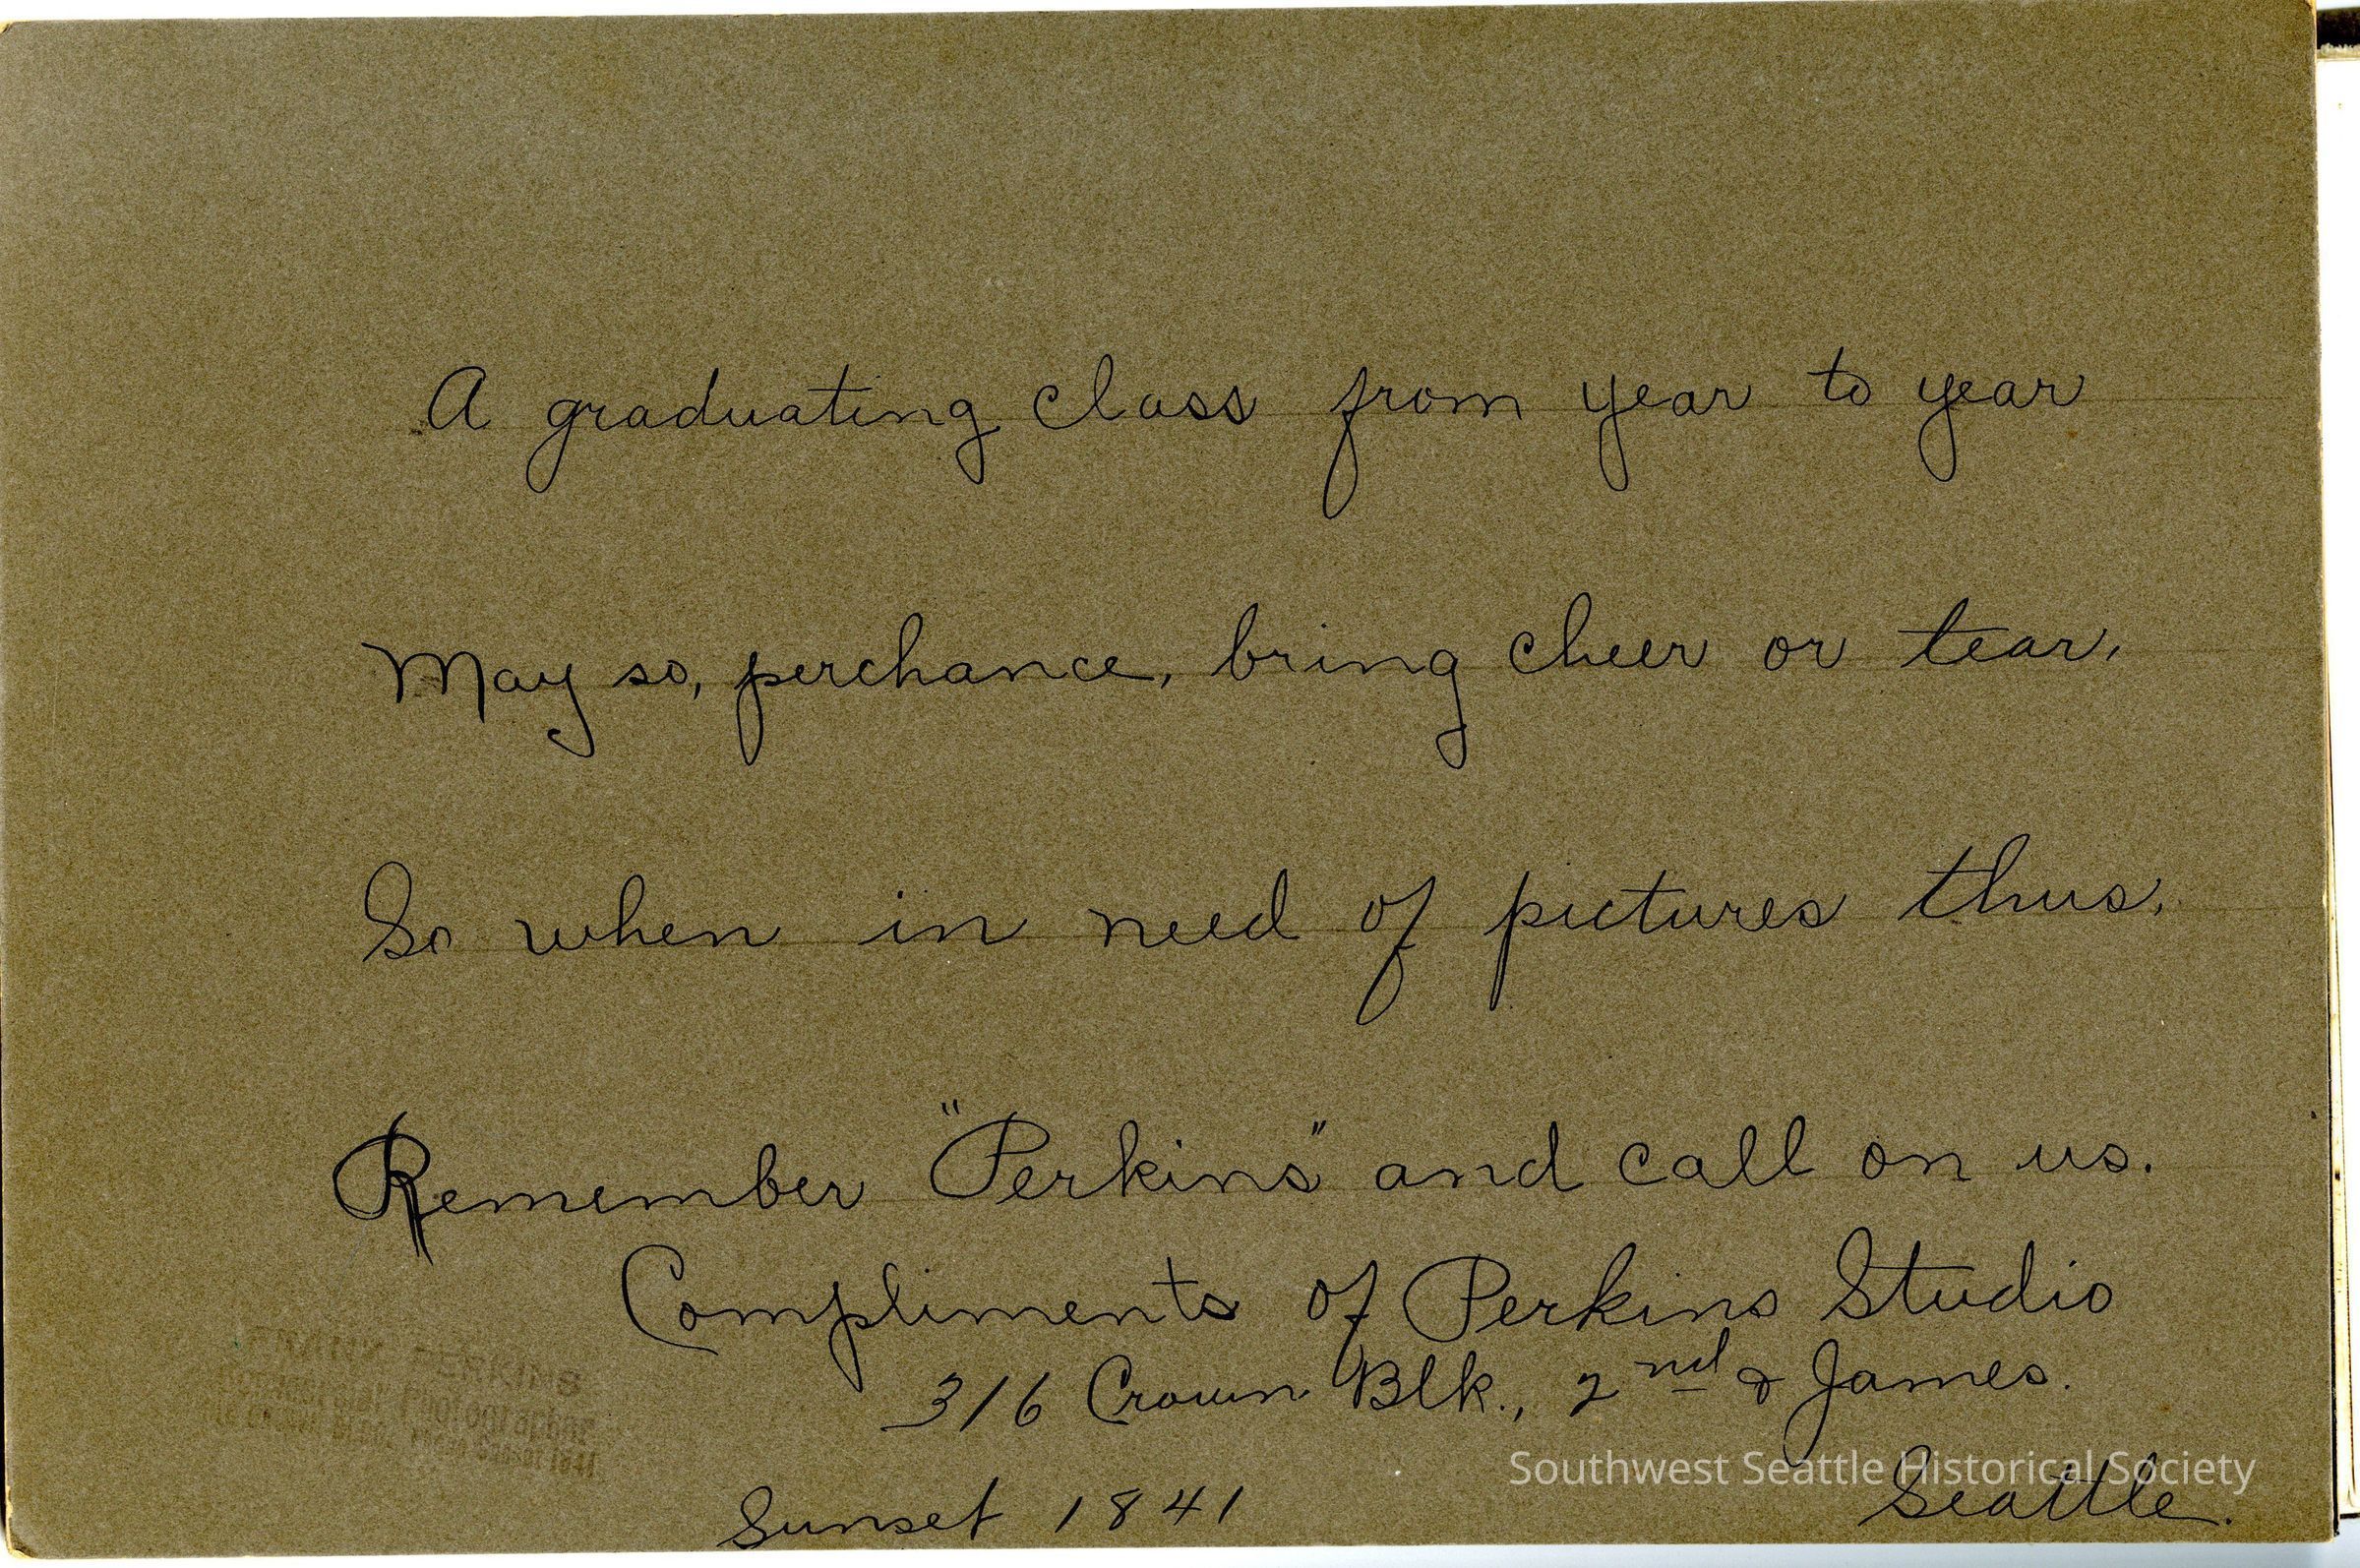 A graduating class from year to year
May so, perchance, bring cheer or tear,
So when in need of pictures thus,
Remember "Perkins" and call on us.
Compliments of Perkins Studio
316 Crown Blk., 2nd & James.
Seattle.
Sunset 1841
PERKINS
Photographer
Sunset 1841
Southwest Seattle Historical Society